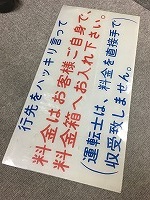 行先をハッキリ言って
料金はお客様ご自身で、
料金箱へお入れ下さい。
(運転士は、料金を直接手で
収受致しません。)